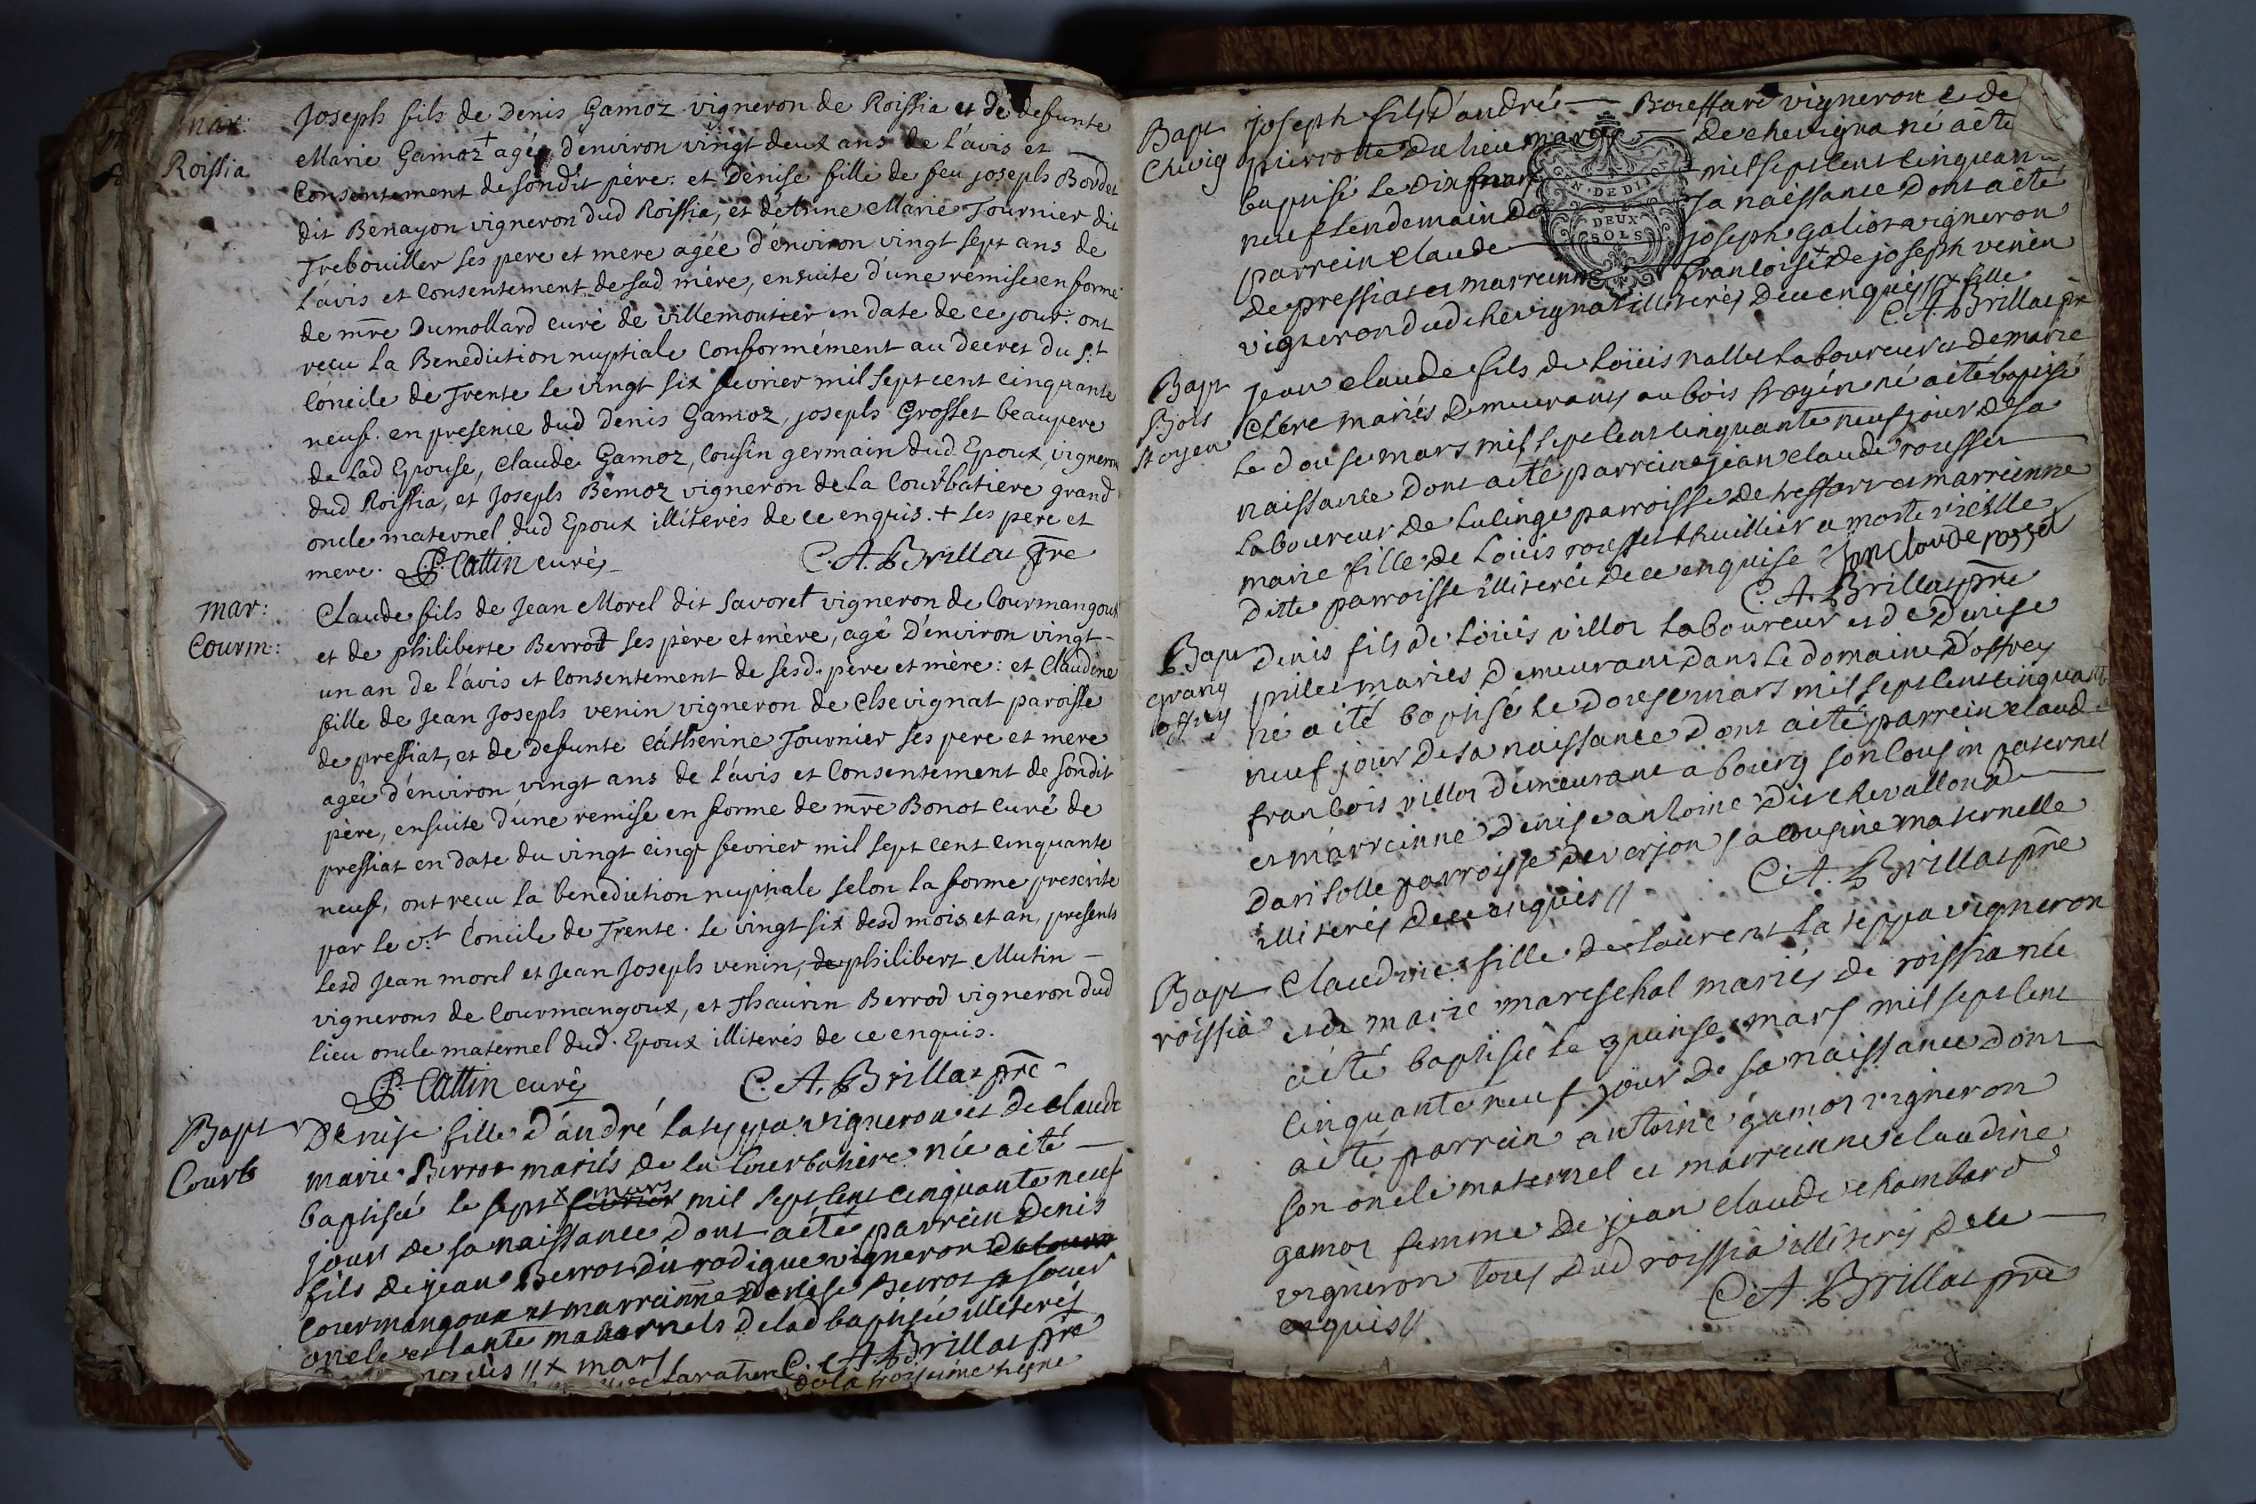 mar:
Roissia
Joseph fils de Denis Gamoz vigneron de Roissia et de defunte
Marie Gamoz + agé d'environ vingt deux ans de l'avis et
Consentement de sondit père: et Denise fille de feu joseph Bordet
dit Benayon vigneron dud Roissia, et de Anne Marie Tournier dit
Trebouiller ses pere et mere agée d'environ vingt sept ans de
l'avis et Consentement de sad mère, ensuite d'une remise en forme
de mre Dumollard curé de villemoutier en date de ce jour. ont
reçu la Benediction nuptiale Conformément au decret du St
Concile de Trente le vingt six fevrier mil sept cent cinquante
neuf. en presence dud Denis Gamoz, joseph Grosset beaupere
de lad Epouse, Claude Gamoz, Cousin germain dud Epoux, vigneron
dud Roissia, et Joseph Bemoz vigneron de la Courbatiere grand
oncle maternel dud Epoux illiterés de ce enquis. + ses pere et
mere. Cattin curé C. A. Brillat pre
mar:
Courm:
Claude fils de Jean Morel dit Savoret vigneron de Courmangoux
et de philiberte Berrod ses père et mère, agé d'environ vingt-
un an de l'avis et Consentement de sesd. père et mère: et Claudine
fille de Jean Joseph venin vigneron de Chevignat paroisse
de pressiat, et de defunte Catherine Tournier ses pere et mere
agée d'environ vingt ans de l'avis et Consentement de sondit
père, ensuite d'une remise en forme de mre Bonot curé de
pressiat en date du vingt cinq fevrier mil sept cent cinquante
neuf, ont reçu la benediction nuptiale selon la forme prescrite
par le St Concile de Trente. le vingt six desd mois et an, presents
lesd Jean morel et Jean Joseph venin, de philibert Mutin
vignerons de Courmangoux, et Thaurin Berrod vigneron dud
lieu oncle maternel dud. Epoux illiterés de ce enquis.
Cattin curé C. A. Brillat pre
Bapt
Courb
Denise fille d'andré lateppa vigneron et de claude
marie Berrot mariés de la Courbatiere née a été
baptisée le sept x fevrier mars mil sept cent cinquante neuf
jour de sa naissance dont a été parrein Denis
fils de jean Berrot du rodigue vigneron de courm
Courmangoux et marreinne Denise Berrot sa soeur
oncle et tante maternels de lad baptisée illiterés
x mars C. A. Brillat pre
de la troisième ligne
Bapt
Chevig
joseph fils d'andré Bouessard vigneron et de
pierrotte du lieu mariés de chevigna né a été
baptisé le dix mars mil sept cent cinquante
neuf lendemain de sa naissance dont a été
parrein Claude joseph galiot vigneron
de pressiat et marreinne francoise + de joseph venin
vigneron dud chevignat illiterés de ce enquis // x fille
C. A. Brillat pre
Bapt
Bois
froyen
jean claude fils de Loüis nallet laboureur et de marie
Clere mariés demeurans au bois froyen né a été baptisé
le douse mars mil sept cent cinquante neuf jour de sa
naissance dont a été parrein jean claude rousset
laboureur de lulinge parroisse de treffort et marreinne
marie fille de Loüis rousset thuillier a morte vieille
ditte parroisse illiterée de ce enquise jan cloude rosset
C. A. Brillat pre
Bapt
grang
offrey
Denis fils de Loüis villot laboureur et de Denise
pillet mariés demeurans dans le domaine d'offrey
né a été baptisé le douse mars mil sept cent cinquante
neuf jour de sa naissance dont a été parrein claude
francois villot demeurant a bourg son cousin paternel
et marreinne Denise antoine dit chevallon de
darisolle parroisse de verjon sa cousine maternelle
illiterés de ce enquis // C. A. Brillat pre
Bapt
roissia
Claudine fille de laurent la teppa vigneron
et de marie mareschal mariés de roissia née
a été baptisée le quinse mars mil sept cent
cinquante neuf jour de sa naissance dont
a été parrein antoine gamoz vigneron
son oncle maternel et marreinne claudine
gamoz femme de jean claude chambard
vigneron tous dud roissia illiterés de ce
enquis // C. A. Brillat pre
GEN. DE DIJON
DEUX
SOLS